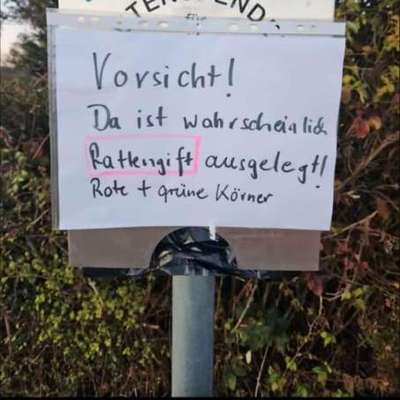 Vorsicht!
Da ist wahrscheinlich
Rattengift ausgelegt!
Rote + grüne Körner